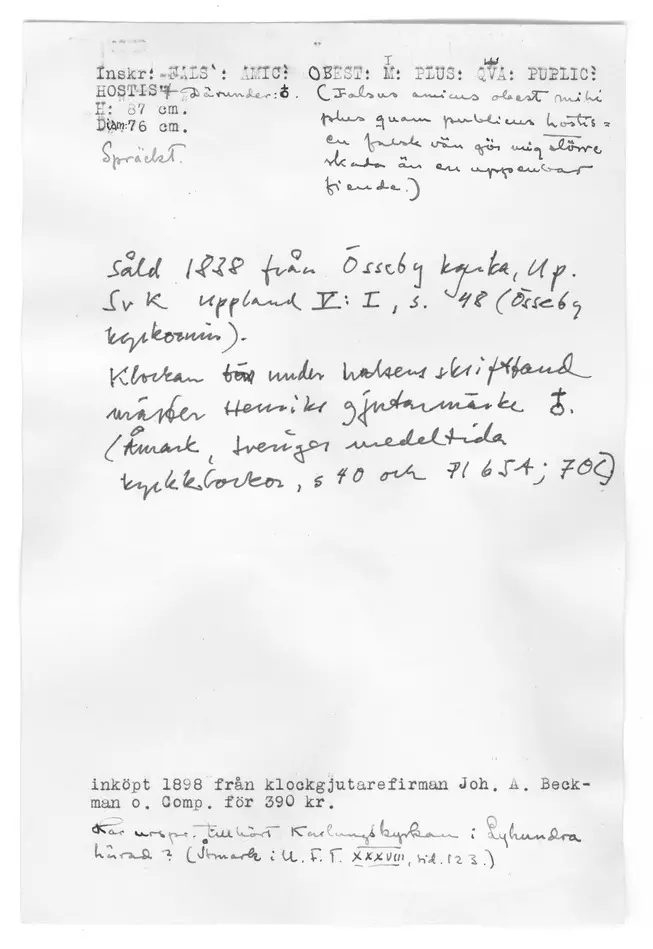 Inskr: FALS': AMIC: OBEST: M: PLUS: QVA: PUBLIC:
HOSTIS Därunder: ♁. (Falsus amicus obest mihi
H: 87 cm. plus quam publicus hostis =
Diam: 76 cm. en falsk vän gör mig större
Spräckt. skada än en uppenbar
fiende.)
Såld 1838 från Össeby kyrka, Up.
SvK Uppland V: I, s. 48 (Össeby
kyrkoruin).
Klockan under halsens skriftband
mäster Henriks gjutarmärke ♁.
(Åmark, Sveriges medeltida
kyrkklockor, s 40 och Pl 65A; 70C)
inköpt 1898 från klockgjutarefirman Joh. A. Beck-
man o. Comp. för 390 kr.
Har urspr. tillhört Karlungskyrkan i Lyhundra
härad? (Åmark i U. F. T. XXXVIII, sid. 123.)